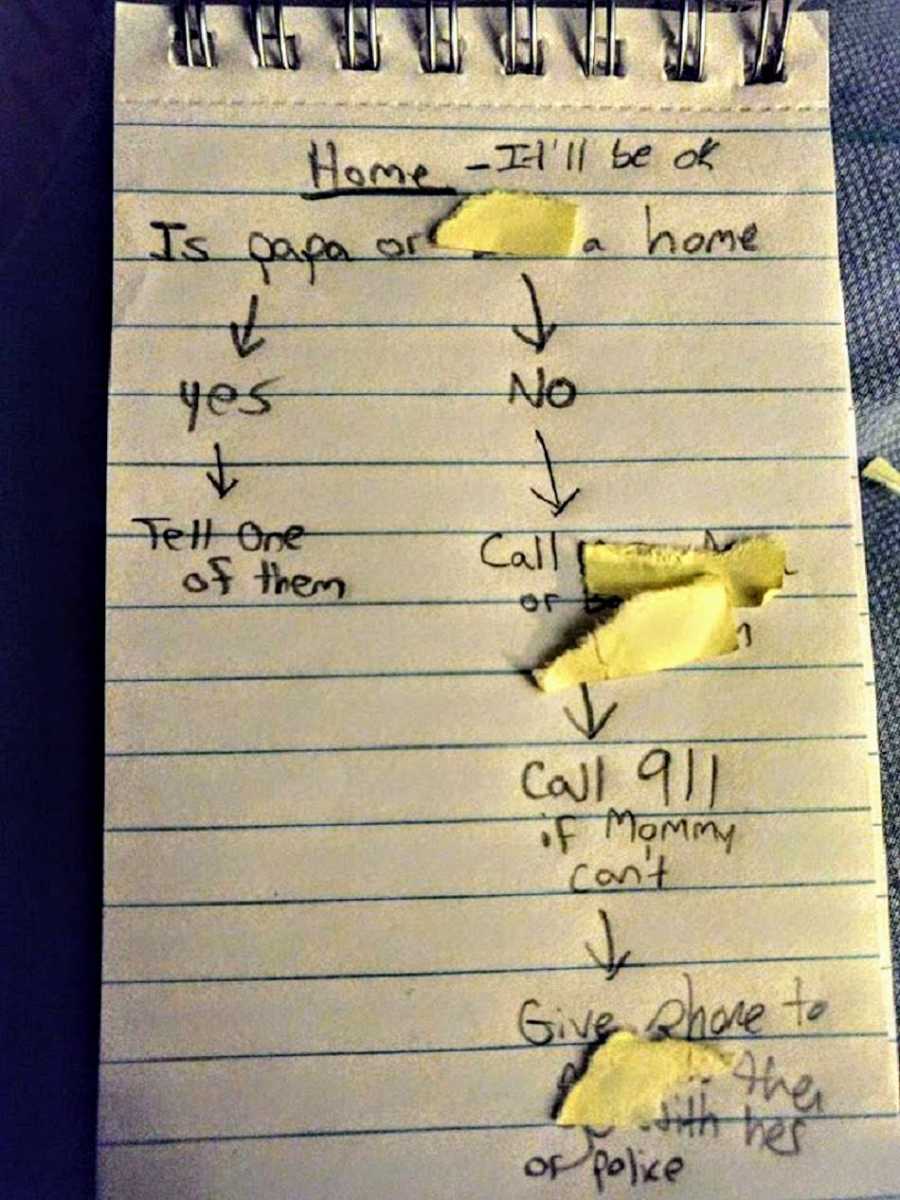 Home - It'll be ok
Is papa or a home
yes No
Tell One
of them
Call
or
Call 911
if Mommy
can't
Give phone to
the
with her
or police